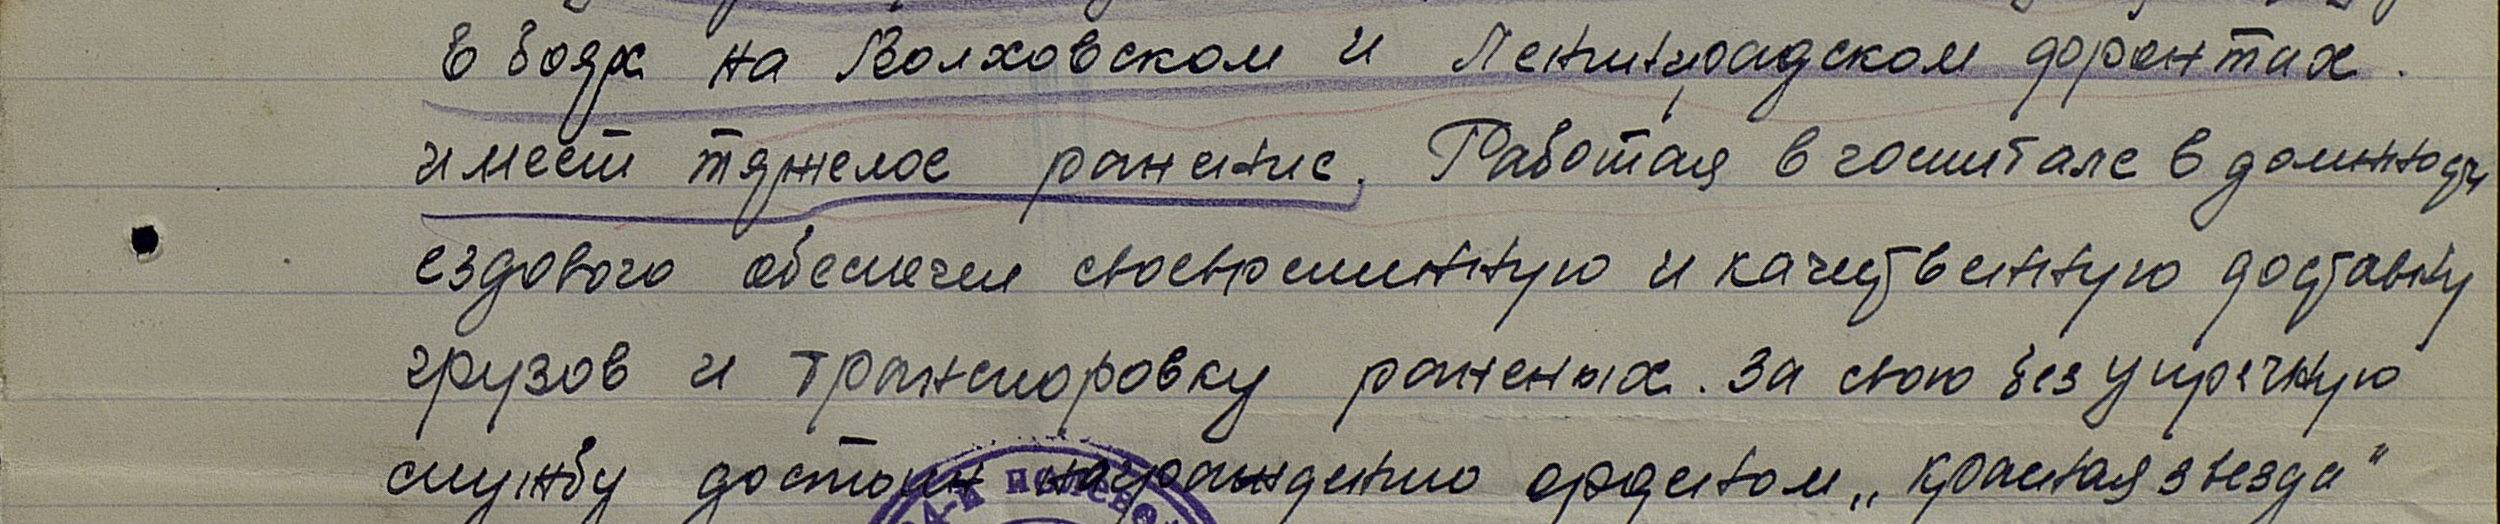 в боях на Волховском и Ленинградском форонтах.
имеет тяжелое ранение. Работая в госпитале в должности
ездового обеспечил своевременную и качественную доставку
грузов и транспоровку раненых. За свою безупречную
службу достоин награждению орденом „Красная звезда"